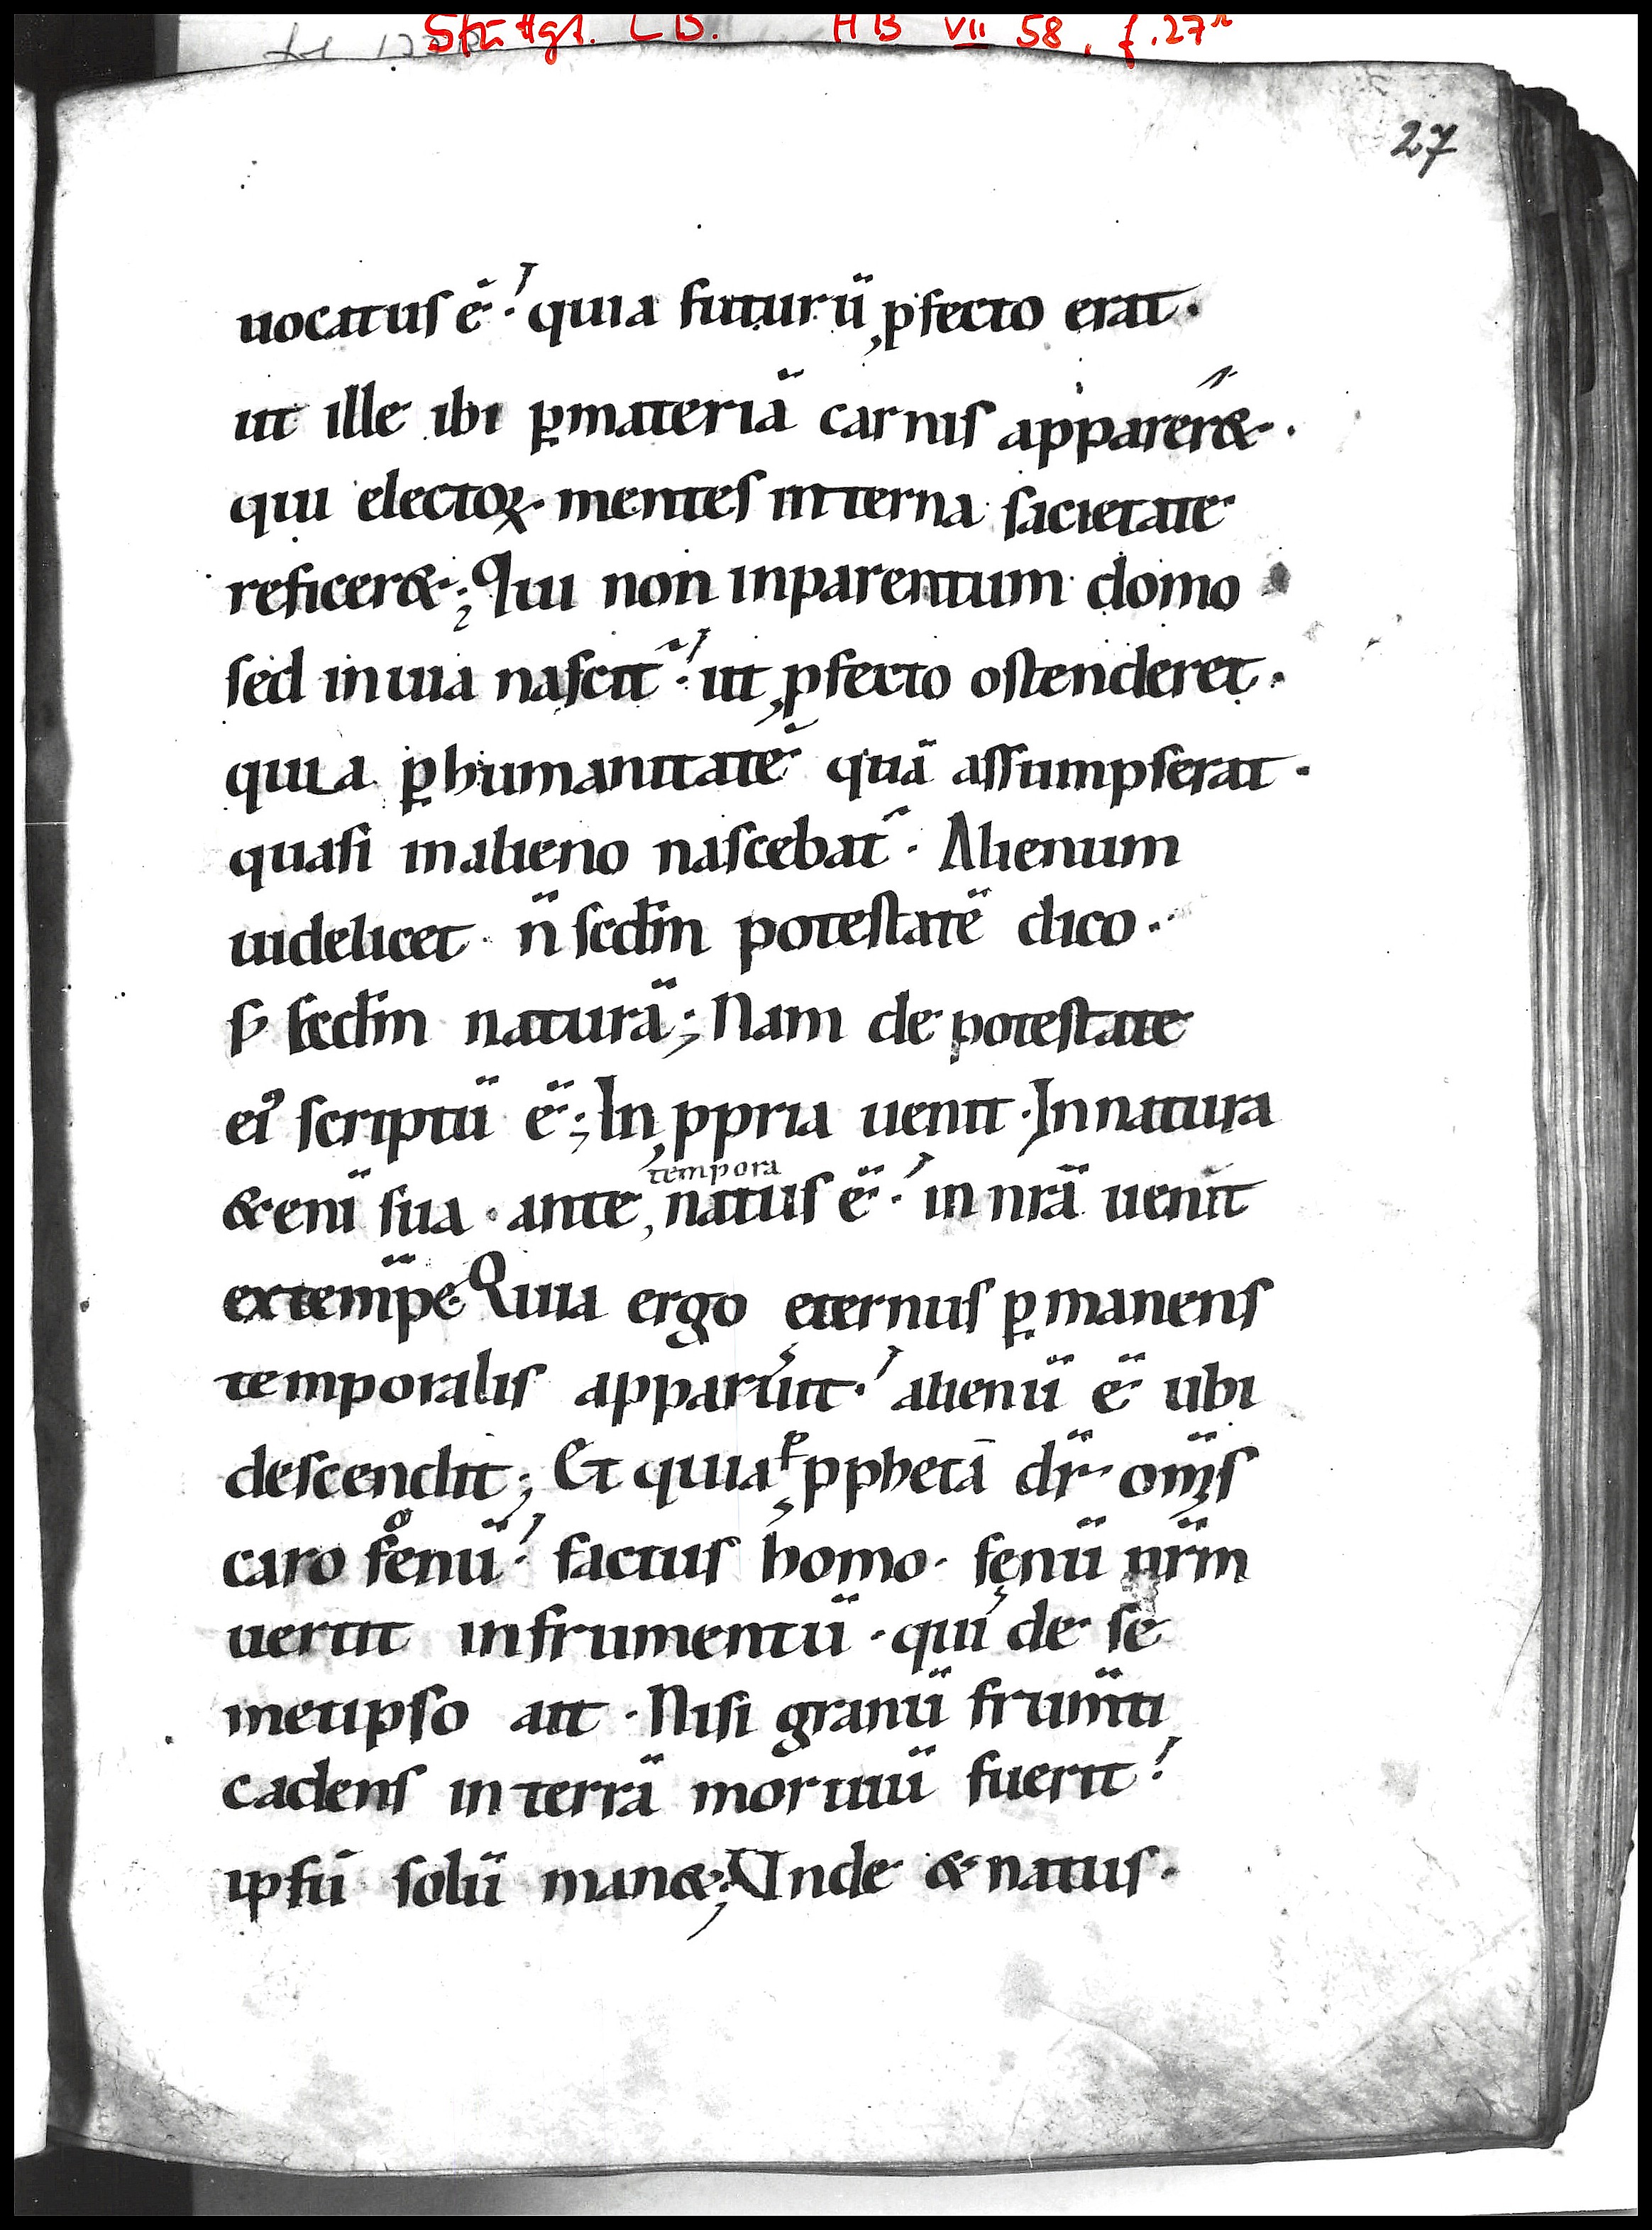 Stuttgt. LB. HB VII 58, f. 27r
27
uocatus ē· quia futurū ꝓfecto erat.
ut ille ibi ꝑmateriā carnis apparer&.
qui electoꝝ mentes interna sacietate
reficer&; Qui non inparentum domo
sed inuia nascit᷑· ut ꝓfecto ostenderet.
quia ꝑhumanitatē quā assumpserat.
quasi inalieno nascebat᷑. Alienum
uidelicet n̄ scdm̄ potestatē dico.
sꝫ scdm̄ naturā; Nam de potestate
ei᷒ scriptū ē; In ꝓpria uenit. Innatura
&enī sua. ante, natus ē· in nr̄ā uenit
tempora
extemp̄e. Quia ergo eternus ꝑmanens
temporalis apparuit· alienū ē ubi
descendit; Et quia ꝑ ꝓphetā dr̄ om̄is
caro foenū· factus homo. fęnū nr̄m
uertit infrumentū. qui de se
metipso ait. Nisi granū frum̄ti
cadens in terrā mortuū fuerit·
ipsū solū man&; Vnde & natus.